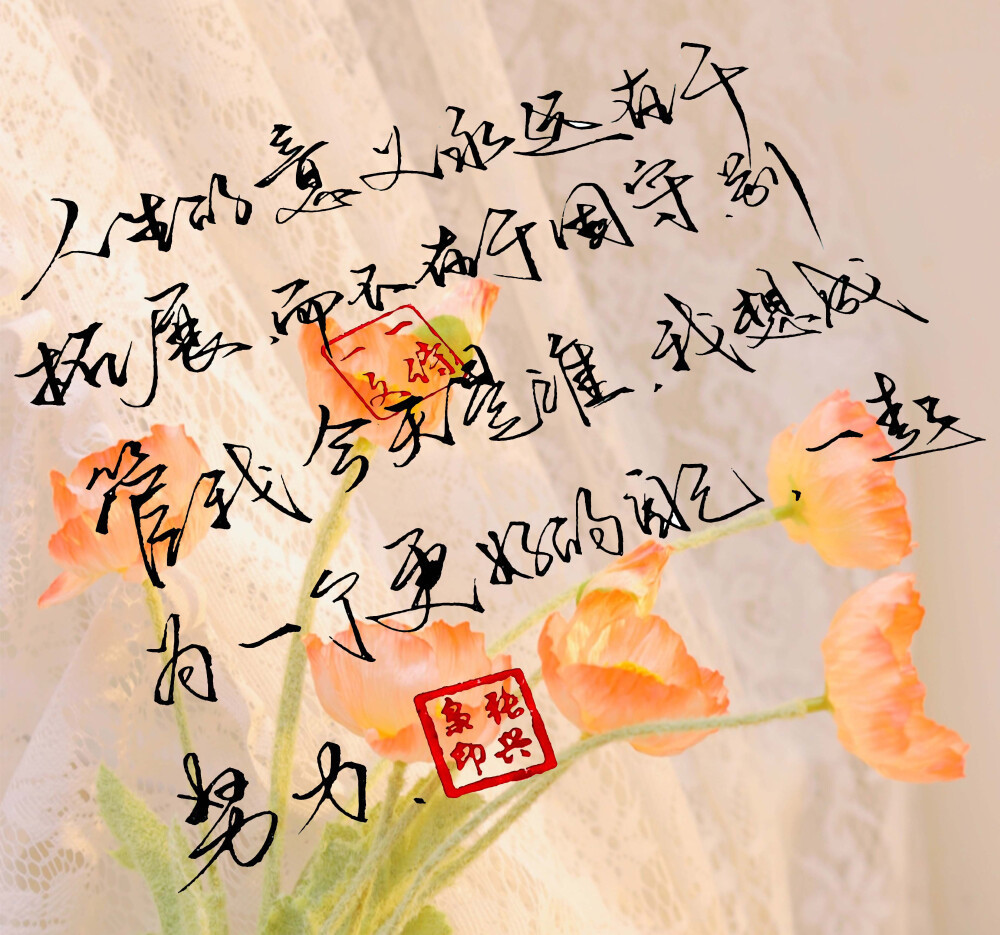 人生的意义永远在于
拓展,而不在于固守.别
管我今天是谁,我想成
为一个更好的自己、一起
努力.
张兴
印